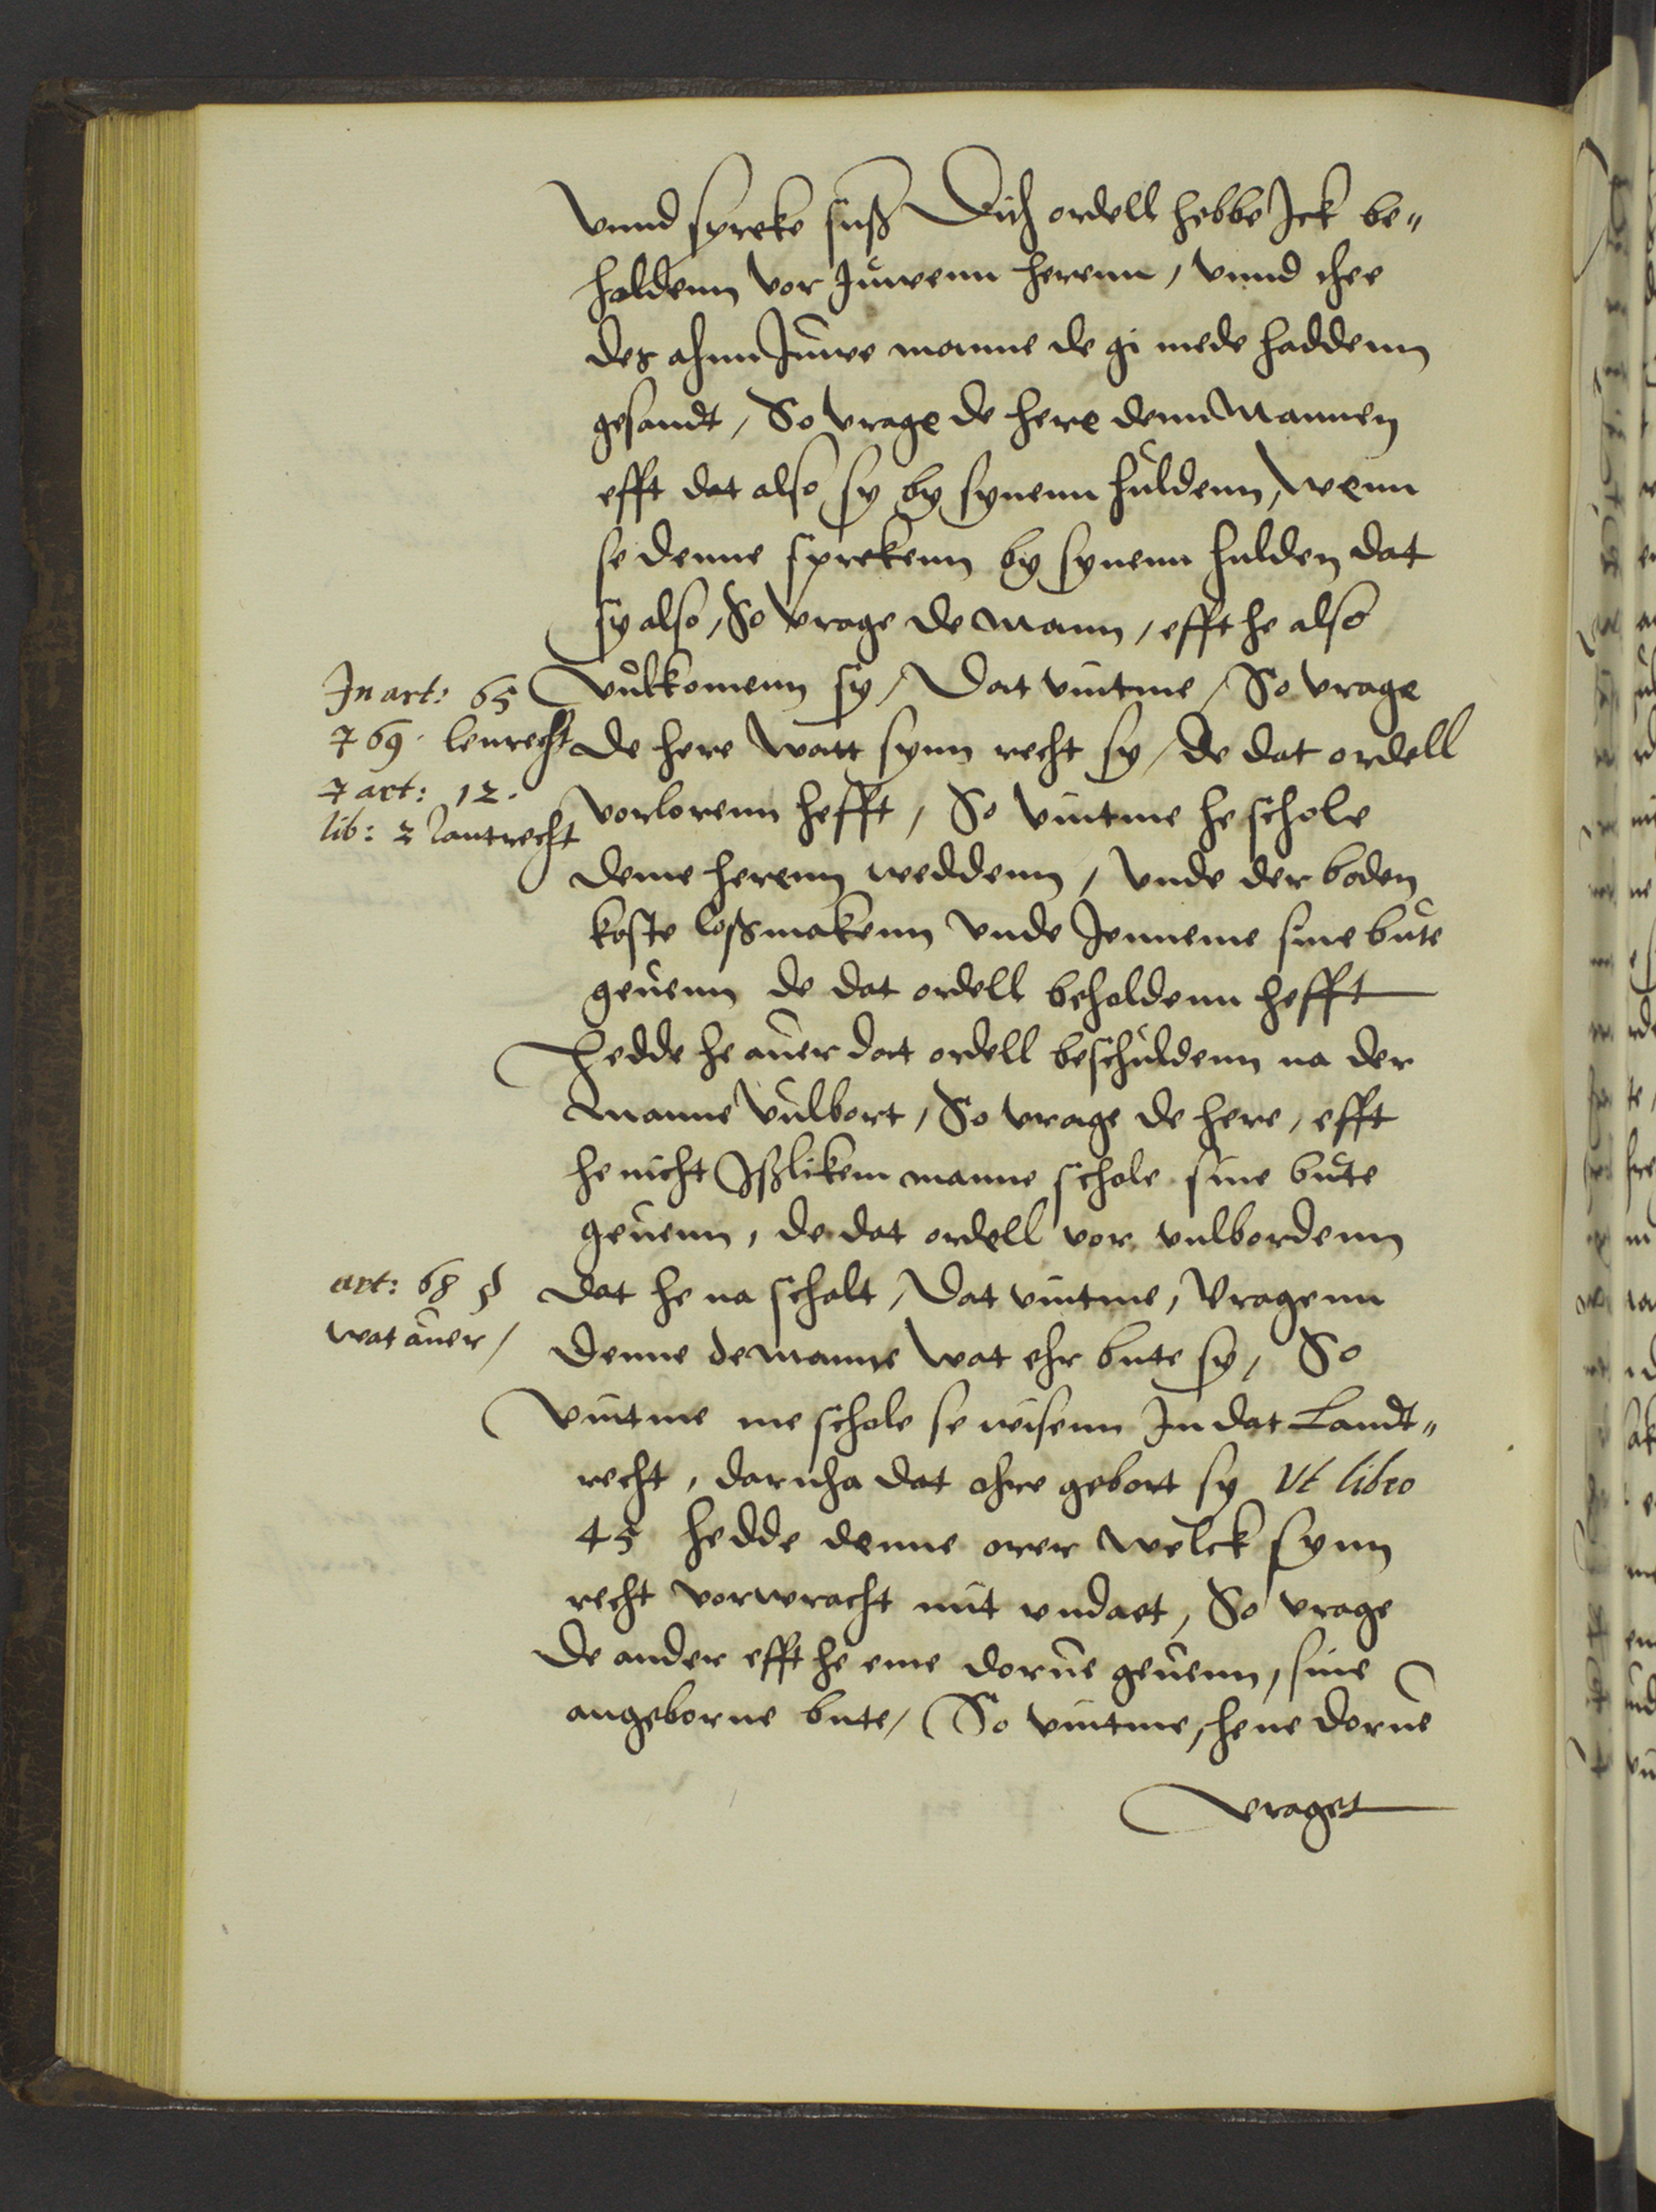 Vnnd spreke suß Dith ordell hebbe Ick be„
holdenn vor Juwenn herenn, vnnd thee
des ahnn Juwe manne de gi mede haddenn
gesandt, So vrage de here denn Mannen
efft dat also sy by synenn huldenn, Wenn
se denne sprekenn by synenn hulden dat
sy also, So vrage de Mann, efft he also
vulkomenn sy, Dat vintme, So vrage
de here Watt synn recht sy, de dat ordell
vorlorenn hefft, So vintme he schole
deme herenn weddenn, vnde der boden
koste loßmakenn vnde Jenneme sine bute
geuenn de dat ordell beholdenn hefft
Hedde he auer dat ordell beschuldenn na der
Manne vulbort, So vrage de here, efft
he nicht Ißlikem manne schole sine bute
geuenn, de dat ordell vor vulbordenn
In art: 65
⁊ 69. lenrecht
⁊ art: 12.
lib: 2 lantrecht
dat he na schalt, Dat vintme, Vragenn
denne de manne wat ehr bute sy, So
art: 68 §
wat auer,
vintme me schole se wisenn In dat Landt„
recht, darnha dat ehre gebort sy Vt libro
45 hedde denne orer welck synn
recht vorwracht mit vndaet, So vrage
de ander efft he eme dorue geuenn, sine
angeborne bute, So vintme, he ne dorue
vraget